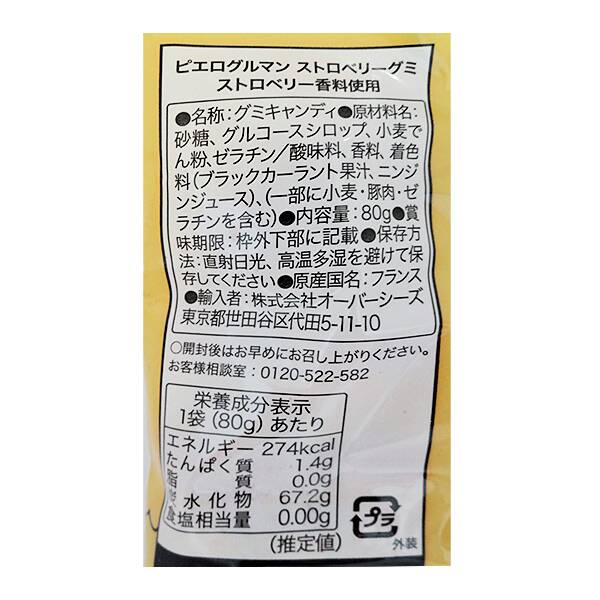 ピエログルマン ストロベリーグミ
ストロベリー香料使用
●名称:グミキャンディ●原材料名:
砂糖、グルコースシロップ、小麦で
ん粉、ゼラチン/酸味料、香料、着色
料(ブラックカーラント果汁、ニンジ
ンジュース)、(一部に小麦・豚肉・ゼ
ラチンを含む)●内容量:80g●賞
味期限:枠外下部に記載●保存方
法:直射日光、高温多湿を避けて保
存してください●原産国名:フランス
●輸入者:株式会社オーバーシーズ
東京都世田谷区代田5-11-10
○開封後はお早めにお召し上がりください。
お客様相談室:0120-522-582
栄養成分表示
1袋(80g)あたり
エネルギー 274kcal
たんぱく質 1.4g
脂質 0.0g
水化物 67.2g
食塩相当量 0.00g
(推定値)
プラ
外装